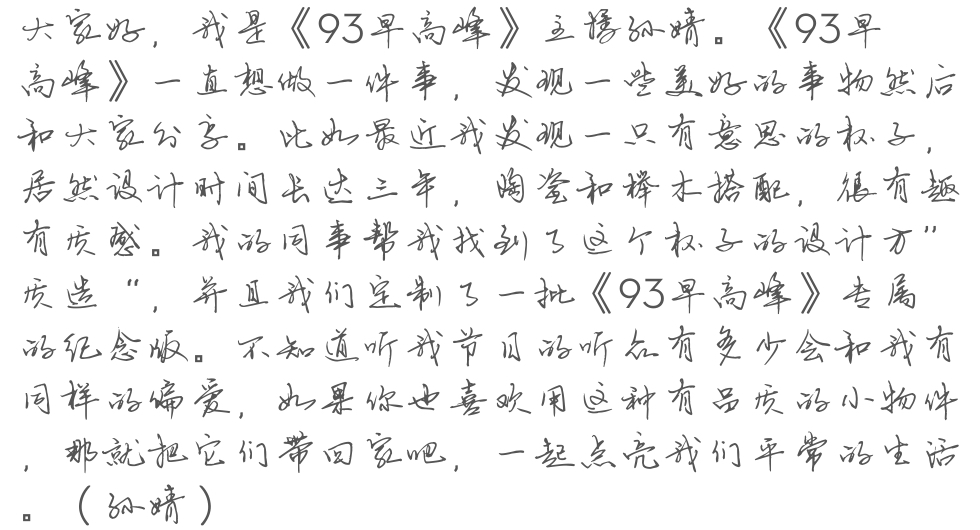 大家好，我是《93早高峰》主播孙婧。《93早
高峰》一直想做一件事，发现一些美好的事物然后
和大家分享。比如最近我发现一只有意思的杯子，
居然设计时间长达三年，陶瓷和榉木搭配，很有趣
有质感。我的同事帮我找到了这个杯子的设计方”
质造“，并且我们定制了一批《93早高峰》专属
的纪念版。不知道听我节目的听众有多少会和我有
同样的偏爱，如果你也喜欢用这种有品质的小物件
，那就把它们带回家吧，一起点亮我们平常的生活
。（孙婧）